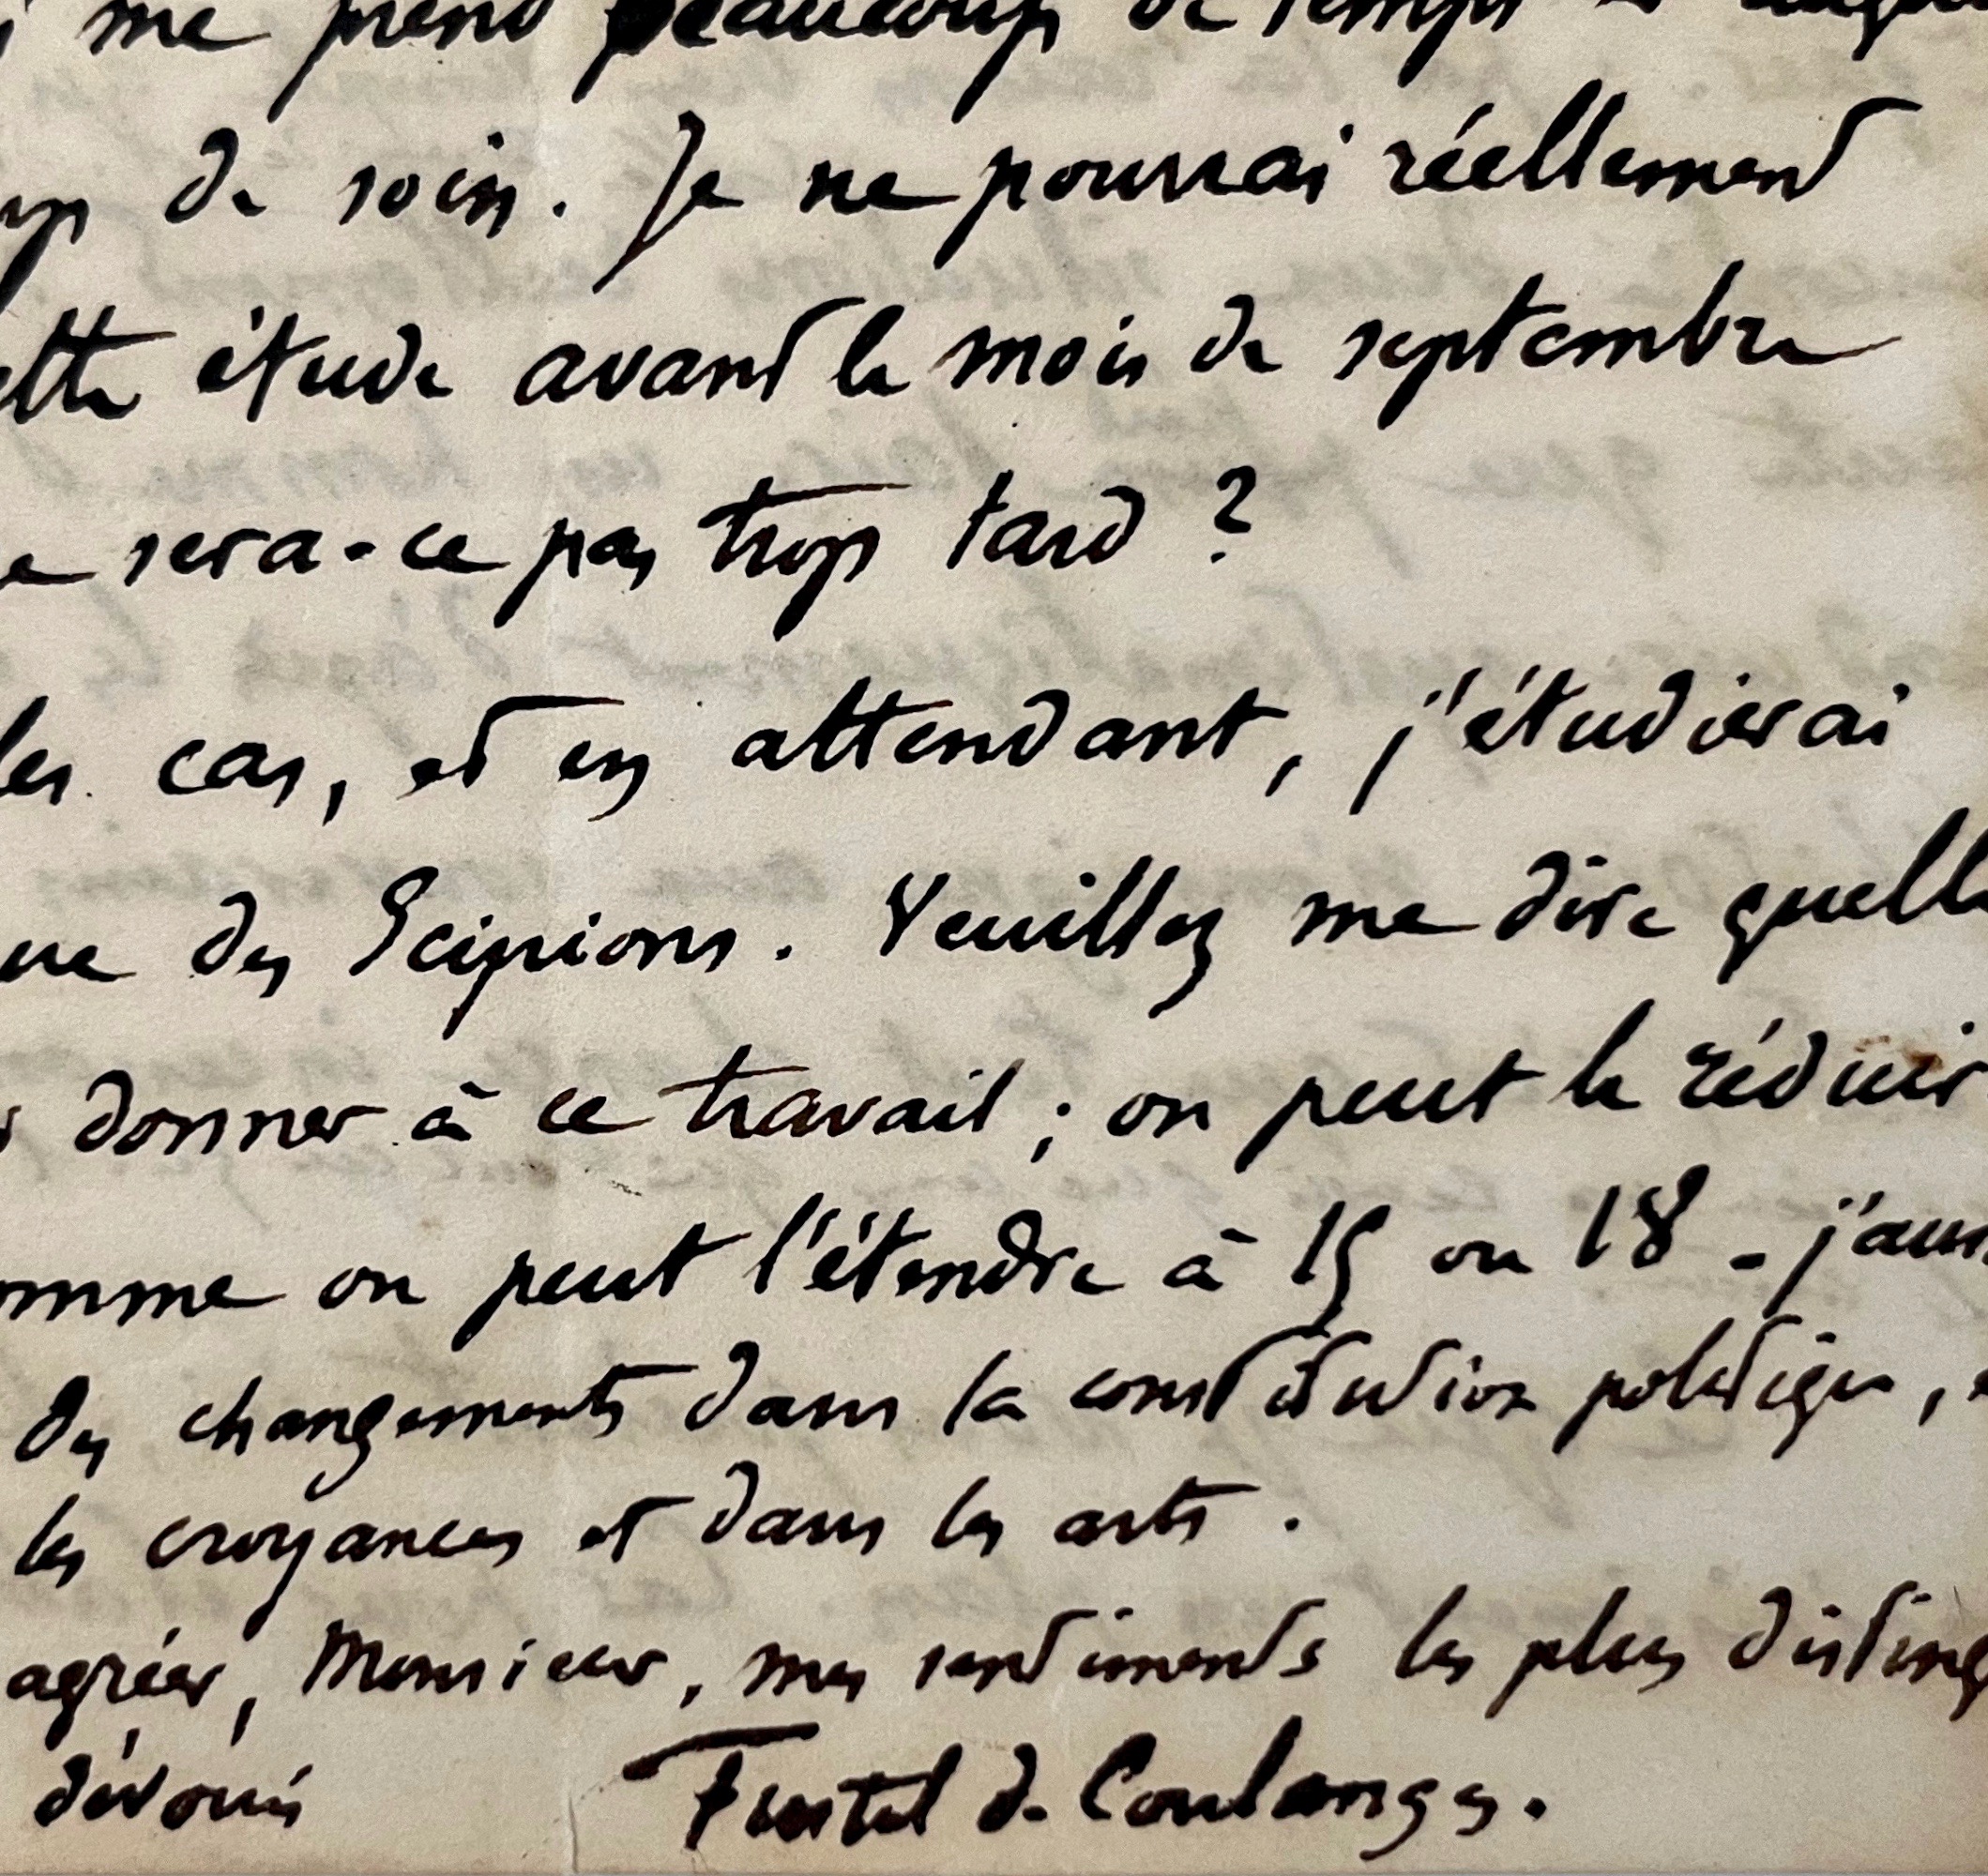 me prend beaucoup de temps
de soin. Je ne pourrai réellement
ette étude avant le mois de septembre
e sera-ce pas trop tard ?
les cas, et en attendant, j'étudierai
ue des Scipions. Veuillez me dire quelle
donner à ce travail ; on peut le réduir
omme on peut l'étendre à 15 ou 18 - j'aur
des changements dans la constitution politique,
les croyances et dans les arts.
agréer, Monsieur, mes sentiments les plus disting
dévoués Fustel de Coulanges.